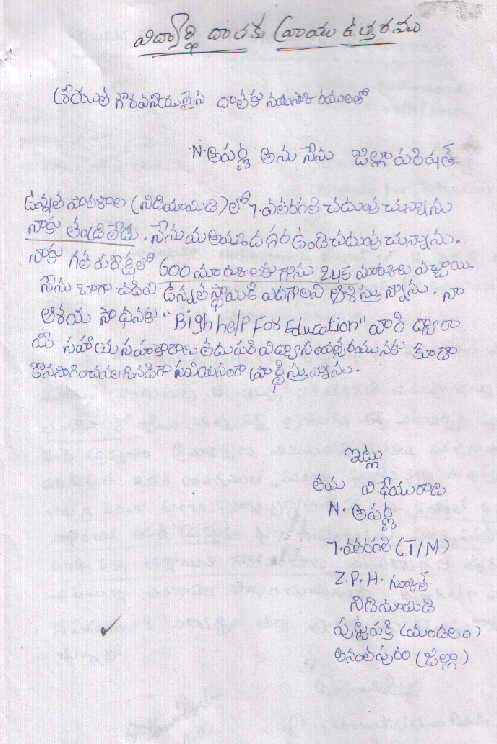 విద్యార్థి దాతకు వ్రాయు ఉత్తరము
శ్రీయుత గౌరవనీయులైన దాతకు నమస్కరములతో
N. అపర్ణ అను నేను జిల్లా పరిషత్
ఉన్నత పాఠశాల (నిడిమామిడి) లో 7. వతరగతి చదువు చున్నాను
నాకు తండ్రి లేడు. నేను మా అమ్మ దగ్గర ఉండి చదువు చున్నాను.
నాకు గత పరీక్షలో 600 మార్కులకు గాను 245 మార్కులు వచ్చాయి
నేను బాగా చదివి ఉన్నత స్థాయికి ఎదగాలని ఆశిస్తున్నాను. నా
ఆశయ సాధనకు "Bigh help For Education" వారి ద్వారా
మీ సహాయ సహకారాలు తదుపరి విద్యా సంవత్సరమునకు కూడా
కొనసాగించవలసినదిగా సవినయంగా ప్రార్థిస్తున్నాను.
ఇట్లు
తమ విధేయురాలు
N. అపర్ణ
7. వతరగతి (T/M)
Z.P.H. స్కూల్
నిడిమామిడి
పుట్టపర్తి (మండలం)
అనంతపురం (జిల్లా)